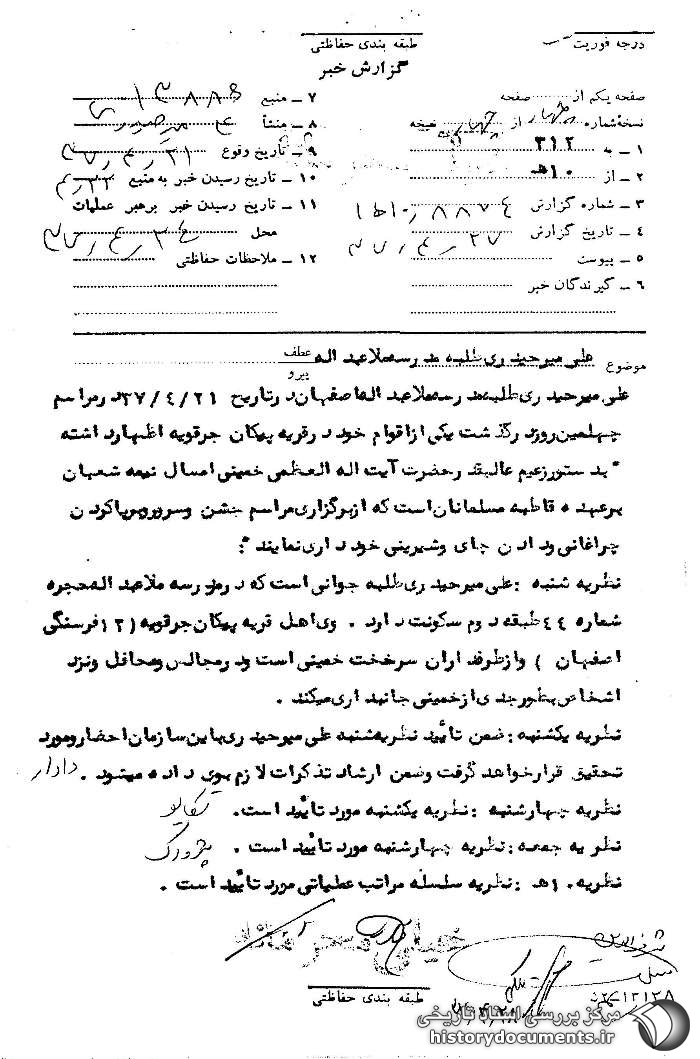 درجه فوریت
طبقه بندی حفاظتی
گزارش خبر
صفحه یکم از صفحه
نسخه شماره چهار از چهار نسخه
۱ ــ به ۳۱۲
۲ ــ از ۱۰هـ
۳ ــ شماره گزارش ۸۸۷۴/۱۰هـ۱
۴ ــ تاریخ گزارش ۳۷/۴/۲۷
۵ ــ پیوست
۶ ــ گیرندگان خبر
۷ ــ منبع
۸ ــ منشأ
۹ ــ تاریخ وقوع ۳۷/۴/۲۱
۱۰ ــ تاریخ رسیدن خبر به منبع
۱۱ ــ تاریخ رسیدن خبر برهبر عملیات
محل
۱۲ ــ ملاحظات حفاظتی
موضوع علی میرحیدری طلبه مدرسه ملاعبد اله عطف
پیرو
علی میرحیدری طلبه مدرسه ملاعبد اله اصفهان در تاریخ ۳۷/۴/۲۱ در مراسم
چهلمین روز در گذشت یکی از اقوام خود در قریه پیکان جرقویه اظهار داشته
" بدستور زعیم عالیقدر حضرت آیت اله العظمی خمینی امسال نیمه شعبان
برعهده قاطبه مسلمانان است که از برگزاری مراسم جشن وسرور وبرپا کردن
چراغانی ودادن چای وشیرینی خود داری نمایند ":
نظریه شنبه : علی میرحیدری طلبه جوانی است که در مدرسه ملاعبد اله حجره
شماره ۴۴ طبقه دوم سکونت دارد . وی اهل قریه پیکان جرقویه (۱۲ فرسنگی
اصفهان ) واز طرفداران سرخخت خمینی است ودر مجالس ومحافل ونزد
اشخاص بطور جدی از خمینی جانبداری میکند .
نظریه یکشنبه : ضمن تأئید نظریه شنبه علی میرحیدری باین سازمان احضار ومورد
تحقیق قرار خواهد گرفت وضمن ارشاد تذکرات لازم بوی داده میشود . دادار
نظریه چهارشنبه : نظریه یکشنبه مورد تائید است.
نظریه جمعه : نظریه چهارشنبه مورد تائید است .
نظریه ۱۰هـ : نظریه سلسله مراتب عملیاتی مورد تائید است .
طبقه بندی حفاظتی
مرکز بررسی اسناد تاریخی
historydocuments.ir